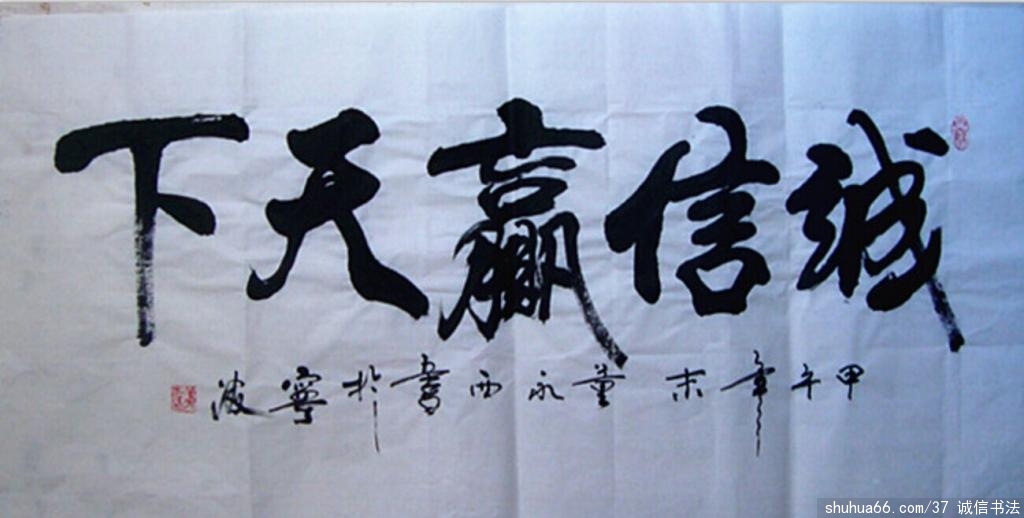 诚信赢天下
甲午年末董永西書於寧波
shuhua66.com/37 诚信书法